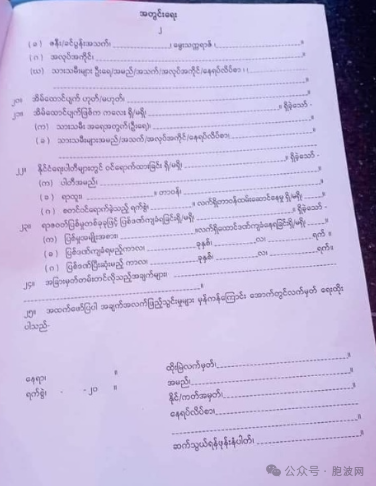 အတွင်းရေး
၂
( ခ ) ဇနီး/ခင်ပွန်းအသက်၊ ၊ မွေးသက္ကရာဇ် ၊ ။
( ဂ ) အလုပ်အကိုင်၊ ။
(ဃ) သားသမီးများ ဦးရေ/အမည်/အသက်/အလုပ်အကိုင်/နေရပ်လိပ်စာ ၊
၂၀။ အိမ်ထောင်ပျက် ဟုတ်/မဟုတ်၊ ။
၂၁။ အိမ်ထောင်ပျက်ဖြစ်က ကလေး ရှိ/မရှိ၊ ။ ရှိခဲ့သော် -
(က) သားသမီး အရေအတွက်(ဦးရေ)၊ ။
( ခ ) သားသမီးများအမည်/အသက်/အလုပ်အကိုင်/နေရပ်လိပ်စာ၊
။
၂၂။ နိုင်ငံရေးပါတီများတွင် ဝင်ရောက်ထားခြင်း ရှိ/မရှိ၊ ။ ရှိခဲ့သော် -
(က) ပါတီအမည်၊ ။
( ခ ) ရာထူး၊ ။ တာဝန်၊ ။
( ဂ ) စတင်ဝင်ရောက်ခဲ့သည့် ရက်စွဲ၊ ။ လက်ရှိတာဝန်ထမ်းဆောင်နေမှု ရှိ/မရှိ၊ ။
၂၃။ ရာဇဝတ်ပြစ်မှုတစ်ခုခုဖြင့် ပြစ်ဒဏ်ကျခံခဲ့ခြင်းရှိ/မရှိ၊ ။ ရှိခဲ့သော် -
(က) ပြစ်မှုအမျိုးအစား၊ ။လက်ရှိထောင်ဒဏ်ကျခံနေရခြင်းရှိ/မရှိ၊ ။
( ခ ) ပြစ်ဒဏ်ကျခံရမည့်ကာလ၊ ခုနှစ်၊ လ၊ ရက် ။
( ဂ ) ပြစ်ဒဏ်ပြီးဆုံးမည့် ကာလ၊ ခုနှစ်၊ လ၊ ရက်။
၂၄။ အခြားမှတ်တမ်းတင်လိုသည့်အချက်များ၊
။
၂၅။ အထက်ဖော်ပြပါ အချက်အလက်ဖြည့်သွင်းမှုများ မှန်ကန်ကြောင်း အောက်တွင်လက်မှတ် ရေးထိုး
ပါသည်-
ထိုးမြဲလက်မှတ်၊ ။
နေရာ၊ ။ အမည်၊ ။
ရက်စွဲ၊ - -၂၀ ။ နိုင်/ကတ်အမှတ်၊ ။
နေရပ်လိပ်စာ၊
။
ဆက်သွယ်ရန်ဖုန်းနံပါတ်၊ ။
公众号 · 胞波网